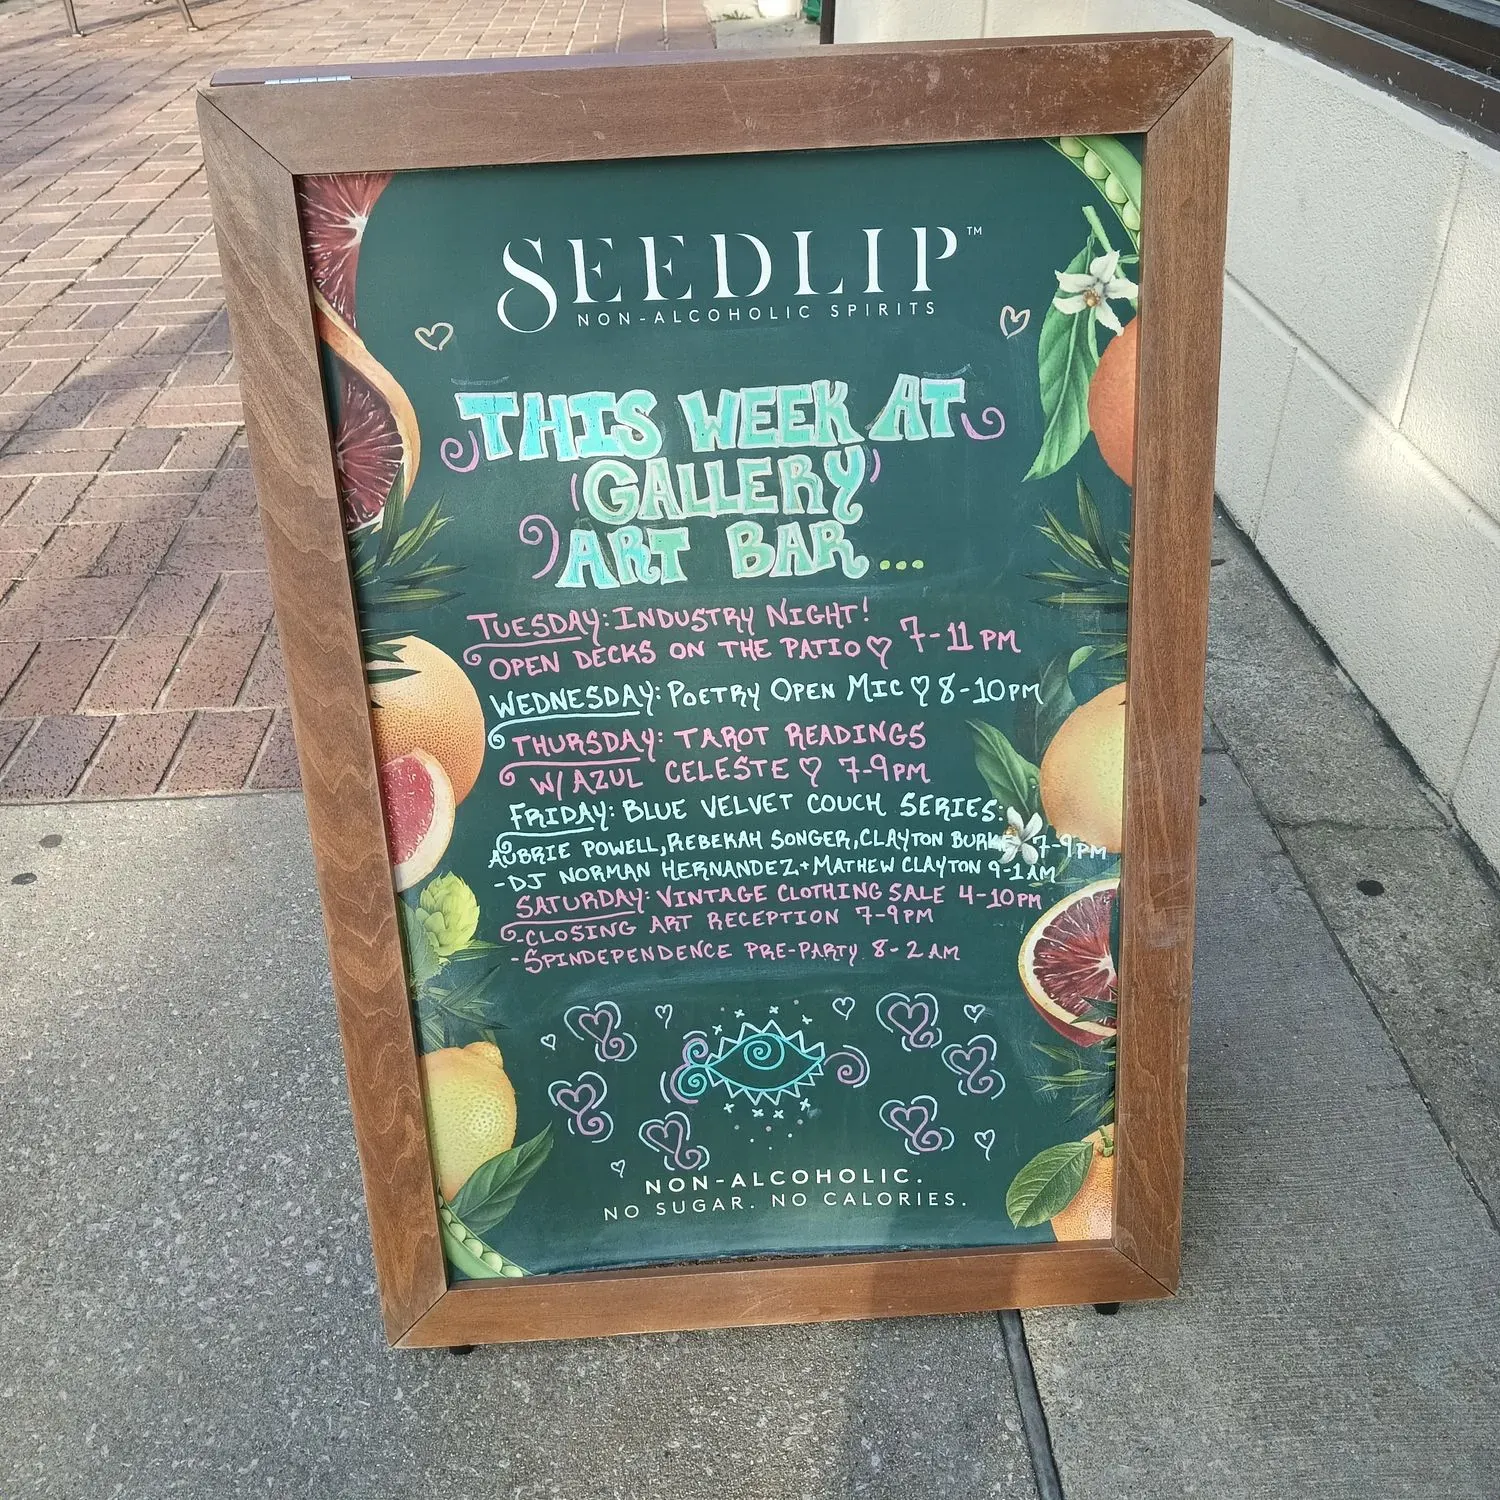 SEEDLIP™
NON-ALCOHOLIC SPIRITS
THIS WEEK AT
GALLERY
ART BAR...
TUESDAY: INDUSTRY NIGHT!
OPEN DECKS ON THE PATIO♡ 7-11 PM
WEDNESDAY: POETRY OPEN MIC♡ 8-10PM
THURSDAY: TAROT READINGS
W/ AZUL CELESTE ♡ 7-9PM
FRIDAY: BLUE VELVET COUCH SERIES:
AUBRIE POWELL, REBEKAH SONGER, CLAYTON BURKE 7-9PM
-DJ NORMAN HERNANDEZ + MATHEW CLAYTON 9-1AM
SATURDAY: VINTAGE CLOTHING SALE 4-10PM
-CLOSING ART RECEPTION 7-9PM
-SPINDEPENDENCE PRE-PARTY 8-2AM
NON-ALCOHOLIC.
NO SUGAR. NO CALORIES.